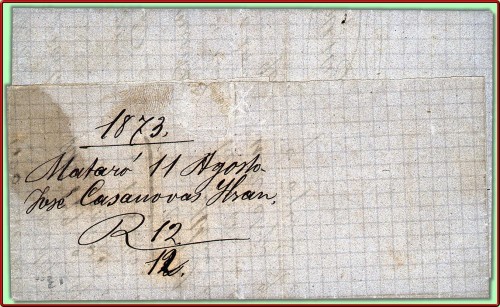 1873.
Mataró 11 Agosto.
José Casanovas
R 12
12.